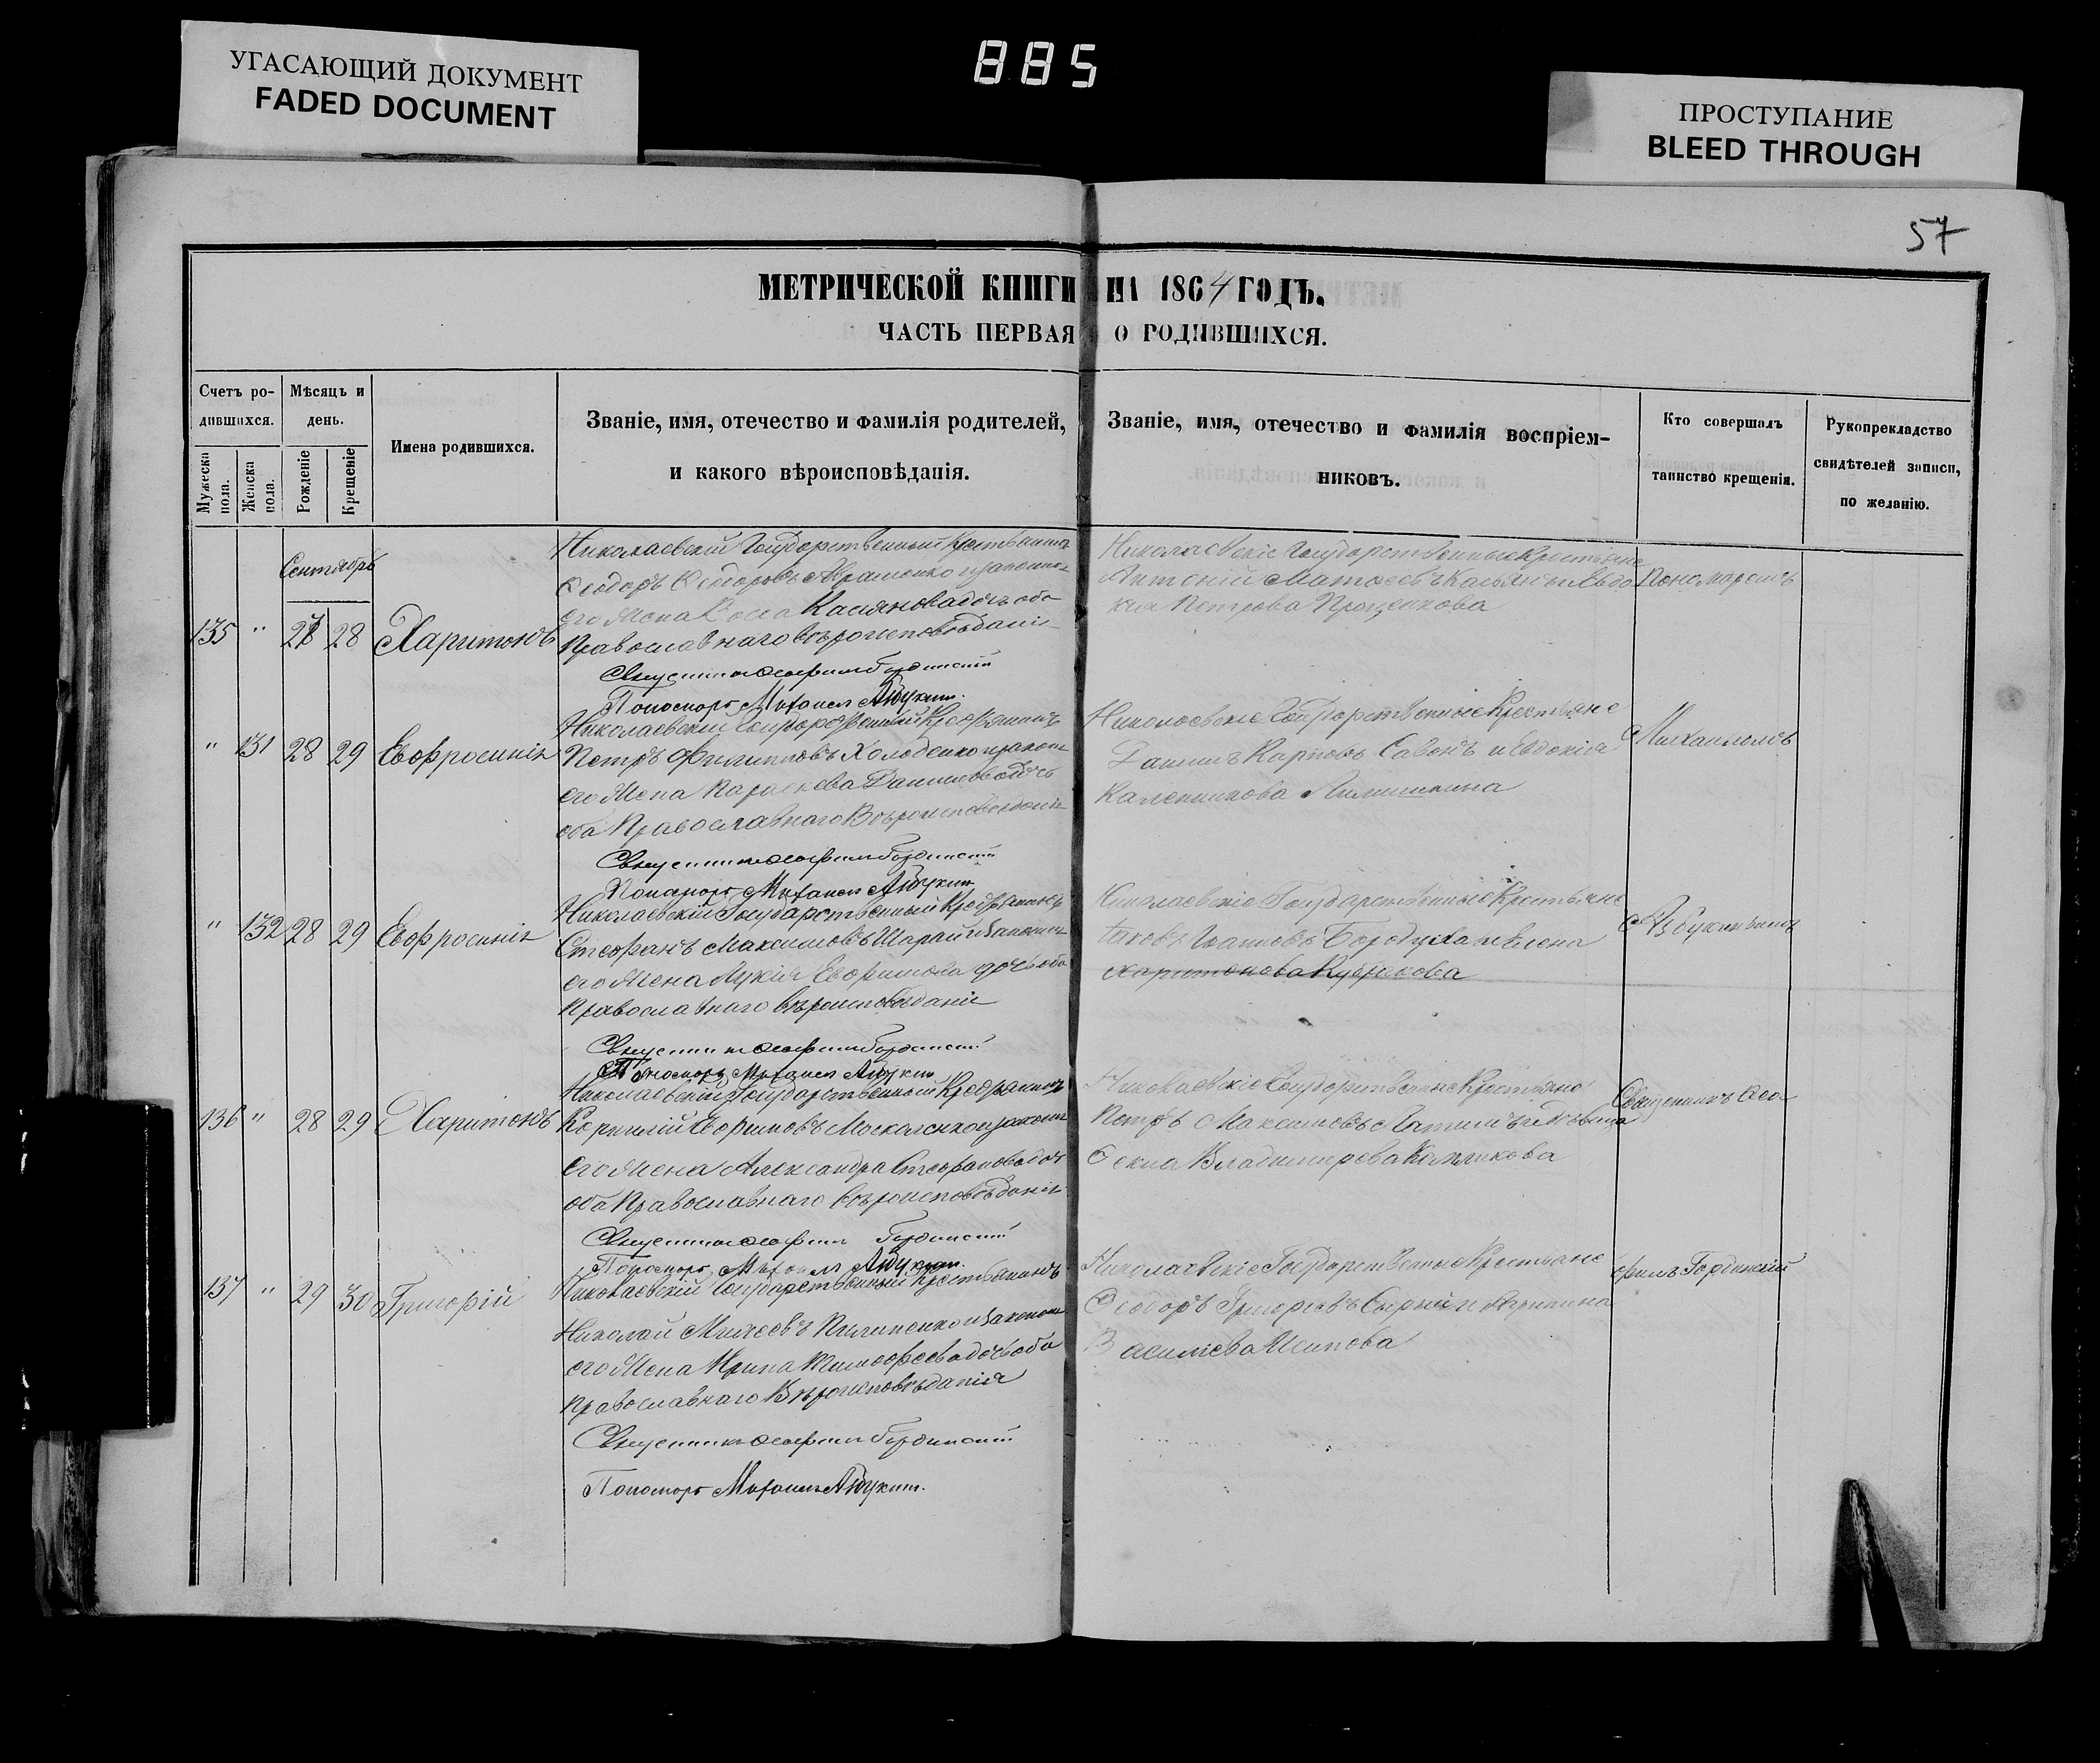 УГАСАЮЩИЙ ДОКУМЕНТ
FADED DOCUMENT
885
ПРОСТУПАНИЕ
BLEED THROUGH
57
МЕТРИЧЕСКОЙ КНИГИ НА 1864 ГОДЪ.
ЧАСТЬ ПЕРВАЯ О РОДИВШИХСЯ.
Счетъ ро-
дившихся.
Мужеска пола.
Женска пола.
Мѣсяцъ и
день.
Рожденіе
Крещеніе
Имена родившихся.
Званіе, имя, отечество и фамилія родителей,
и какого вѣроисповѣданія.
Званіе, имя, отечество и фамилія воспріем-
никовъ.
Кто совершалъ
таинство крещенія.
Рукоприкладство
свидѣтелей записи,
по желанію.
Сентябрь
135 " 27 28 Харитонъ
Николаевскій Государственный Крестьянинъ
Ѳеодоръ Ѳеодоровъ Авраменко и законная
его Жена Касіянова дочь оба
Православнаго вѣроисповѣданія
Священникъ Гординскій
Пономарь Михаилъ Азбукин
Николаевскіе Государственные Крестьяне
Антоній Матѳеевъ Касьянъ и Евдо
кія Петрова Проценкова
" 131 28 29 Евфросинія
Николаевскій Государственный Крестьянинъ
Петръ Филипповъ Холоденко и законная
его Жена Параскева Даниилова дочь
оба Православнаго Вѣроисповѣданія
Священникъ Гординскій
Пономарь Михаилъ Азбукин
Николаевскіе Государственные Крестьяне
Даніилъ Карповъ Савонъ и Евдокія
Каленикова
" 132 28 29 Евфросинія
Николаевскій Государственный Крестьянинъ
Стефанъ Максимовъ Шарай и законная
его Жена Лукія Евфимова дочь оба
Православнаго вѣроисповѣданія
Священникъ Гординскій
Пономарь Михаилъ Азбукин
Николаевскіе Государственные Крестьяне
Іаковъ Іоанновъ Бородуха и Елена
Харитонова
136 " 28 29 Харитонъ
Николаевскій Государственный Крестьянинъ
Корнилій Евфимовъ Москаленко и законная
его Жена Александра Стефанова дочь
оба Православнаго вѣроисповѣданія
Священникъ Гординскій
Пономарь Михаилъ Азбукин
Николаевскіе Государственные Крестьяне
Петръ Максимовъ и дѣвица
Ѳекла Владимирова
137 " 29 30 Григорій
Николаевскій Государственный Крестьянинъ
Николай Пилипенко и законная
его Жена Ирина Тимоѳеева дочь оба
православнаго Вѣроисповѣданія
Священникъ Гординскій
Пономарь Михаилъ Азбукин
Николаевскіе Государственные Крестьяне
Ѳеодоръ Григорьевъ и
Василіева
Пономаремъ
Михаиломъ
Азбукинымъ
Священникъ Ѳео
филъ Гординскій